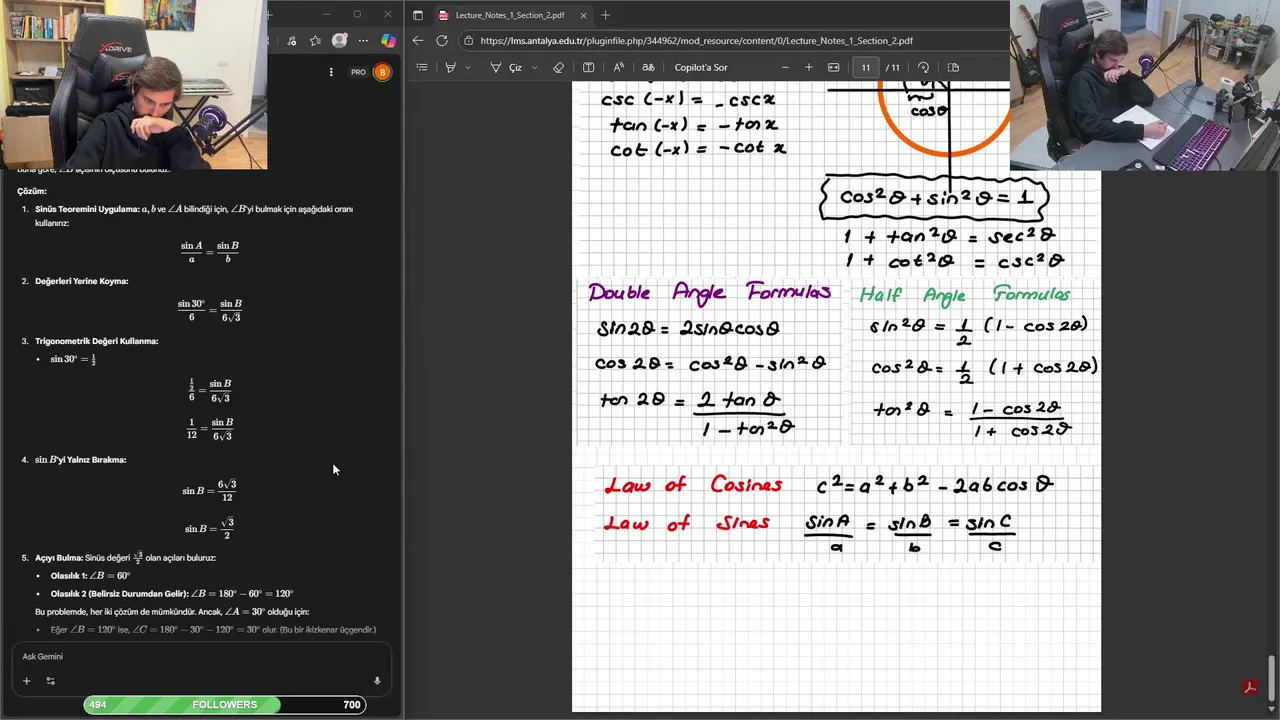 XDRIVE
PRO
B
Çözüm:
1. Sinüs Teoremini Uygulama: a, b ve ∠A bilindiği için, ∠B'yi bulmak için aşağıdaki oranı
kullanırız:
sin A / a = sin B / b
2. Değerleri Yerine Koyma:
sin 30° / 6 = sin B / 6√3
3. Trigonometrik Değeri Kullanma:
• sin 30° = 1/2
1/2 / 6 = sin B / 6√3
1 / 12 = sin B / 6√3
4. sin B'yi Yalnız Bırakma:
sin B = 6√3 / 12
sin B = √3 / 2
5. Açıyı Bulma: Sinüs değeri √3/2 olan açıları buluruz:
• Olasılık 1: ∠B = 60°
• Olasılık 2 (Belirsiz Durumdan Gelir): ∠B = 180° − 60° = 120°
Bu problemde, her iki çözüm de mümkündür. Ancak, ∠A = 30° olduğu için:
• Eğer ∠B = 120° ise, ∠C = 180° − 30° − 120° = 30° olur. (Bu bir ikizkenar üçgendir.)
Ask Gemini
494 FOLLOWERS 700
Lecture_Notes_1_Section_2.pdf
https://lms.antalya.edu.tr/pluginfile.php/344962/mod_resource/content/0/Lecture_Notes_1_Section_2.pdf
Çiz
Copilot'a Sor
11 / 11
csc (-x) = - cscx
tan (-x) = - tan x
cot (-x) = - cot x
cosθ
cos²θ + sin²θ = 1
1 + tan²θ = sec²θ
1 + cot²θ = csc²θ
Double Angle Formulas
sin2θ = 2sinθcosθ
cos 2θ = cos²θ - sin²θ
tan 2θ = 2 tan θ / 1 - tan²θ
Half Angle Formulas
sin²θ = 1/2 (1 - cos2θ)
cos²θ = 1/2 (1 + cos2θ)
tan²θ = 1 - cos2θ / 1 + cos2θ
Law of Cosines c² = a² + b² - 2ab cos θ
Law of Sines sinA / a = sinB / b = sinC / c